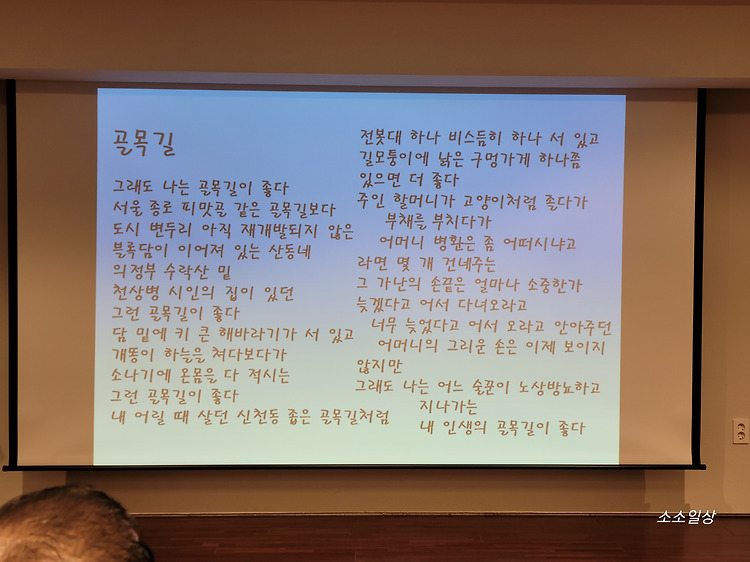 골목길
그래도 나는 골목길이 좋다
서울 종로 피맛골 같은 골목길보다
도시 변두리 아직 재개발되지 않은
블록담이 이어져 있는 산동네
의정부 수락산 밑
천상병 시인의 집이 있던
그런 골목길이 좋다
담 밑에 키 큰 해바라기가 서 있고
개똥이 하늘을 쳐다보다가
소나기에 온몸을 다 적시는
그런 골목길이 좋다
내 어릴 때 살던 신천동 좁은 골목길처럼
전봇대 하나 비스듬히 하나 서 있고
길모퉁이에 낡은 구멍가게 하나쯤
있으면 더 좋다
주인 할머니가 고양이처럼 졸다가
부채를 부치다가
어머니 병환은 좀 어떠시냐고
라면 몇 개 건네주는
그 가난의 손끝은 얼마나 소중한가
늦겠다고 어서 다녀오라고
너무 늦었다고 어서 오라고 안아주던
어머니의 그리운 손은 이제 보이지
않지만
그래도 나는 어느 술꾼이 노상방뇨하고
지나가는
내 인생의 골목길이 좋다
소소일상